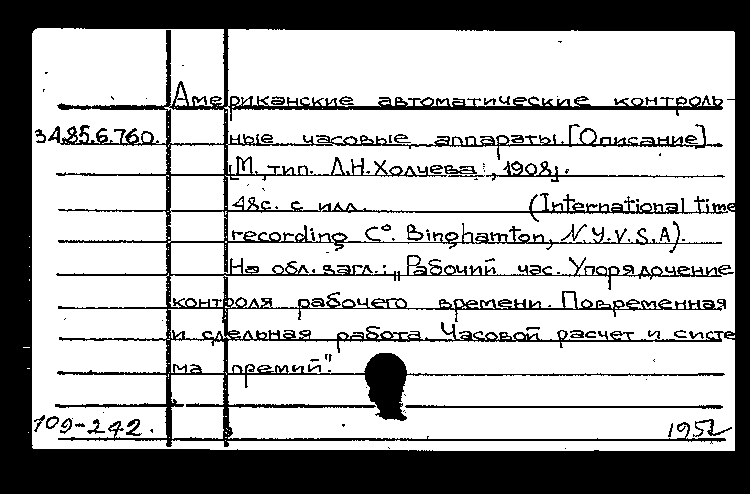 Американские автоматические контроль-
34.85.6.760. ные часовые аппараты. [Описание]
[М., тип. Л.Н. Холчева, 1908].
48с. с илл. (International time
recording Cº. Binghamton, N.Y.V.S.A).
На обл. загл.: „Рабочий час. Упорядочение
контроля рабочего времени. Повременная
и сдельная работа. Часовой расчет и систе
ма премий".
109-242. 1952